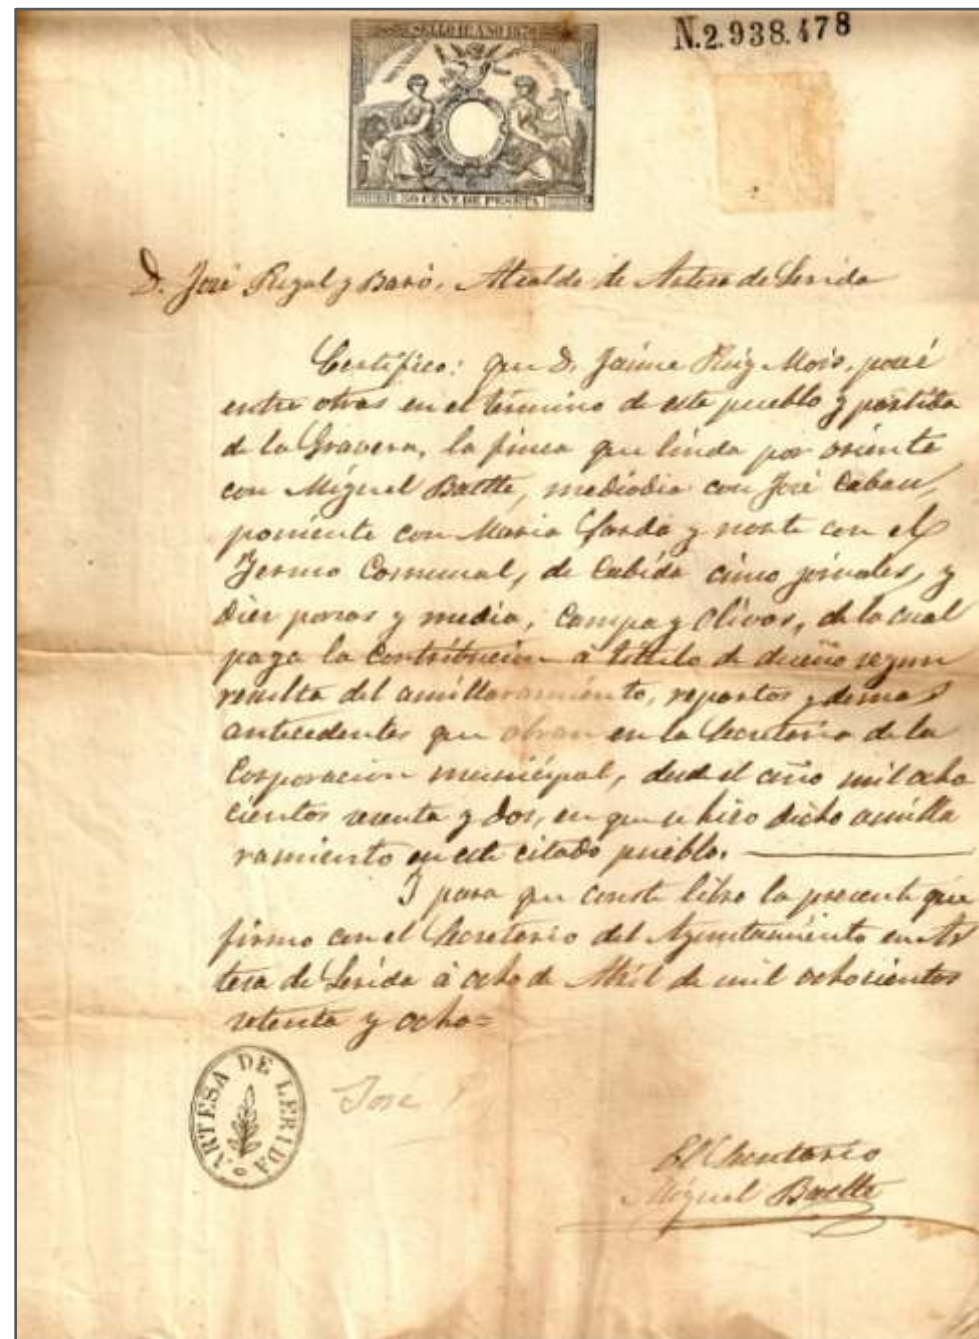 SELLO 11º AÑO 1878
N.2.938.478
50 CENT. DE PESETA
D. José Regal y Baró, Alcalde de Artesa de Lerida
Certifico: que D. Jaime Puig Mois, poseé
entre otras en el término de este pueblo y partida
de la Gravera, la finca que linda por oriente
con Miguel Batlle, mediodia con José Caban,
poniente con Maria Jarda y norte con el
Yermo Comunal, de Cabida cinco jornales, y
diez porcas y media, Campa y Olivos, de la cual
paga la Contribucion á titulo de dueño segun
resulta del amillaramiento, repartos y demas
antecedentes que obran en la Secretaria de la
Corporacion municipal, desde el año mil ocho
cientos sesenta y dos, en que se hizo dicho amilla
ramiento en este citado pueblo.
Y para que conste libro la presente que
firmo con el Secretario del Ayuntamiento en Ar
tesa de Lerida á ocho de Abril de mil ochocientos
setenta y ocho=
ARTESA DE LERIDA
José
El Secretario
Miguel Batlle